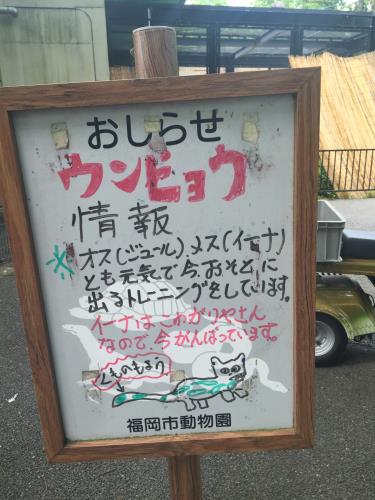 おしらせ
ウンピョウ
情報
※オス(ジュール)メス(イーナ)
とも元気で今、おそとに
出るトレーニングをしています。
イーナはこわがりやさん
なので、今がんばっています。
くものもよう
福岡市動物園